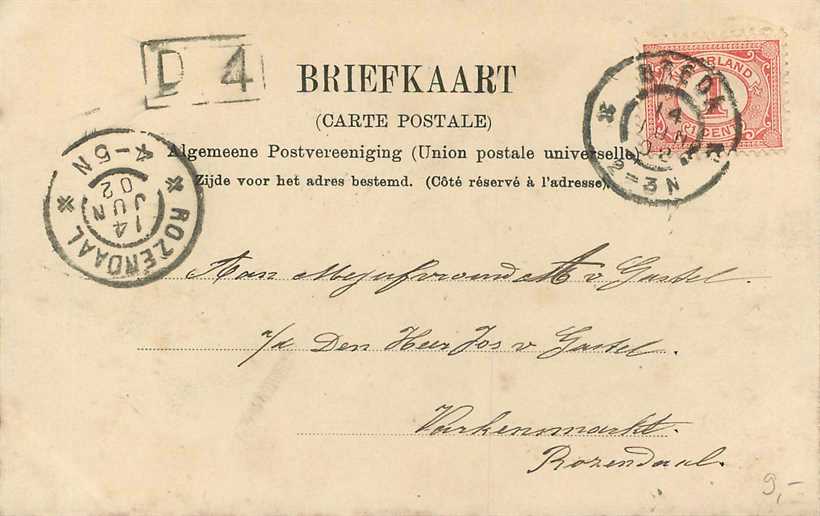 D 4
BRIEFKAART
(CARTE POSTALE)
Algemeene Postvereeniging (Union postale universelle)
Zijde voor het adres bestemd. (Côté réservé à l'adresse).
NEDERLAND
1
CENT
BREDA
14
JUN
02
2-3N
ROZENDAAL
14
JUN
02
4-5N
Aan Mejufvrouw M v Gastel
p/a Den Heer Jos v Gastel.
Varkensmarkt.
Rozendaal.
9,-